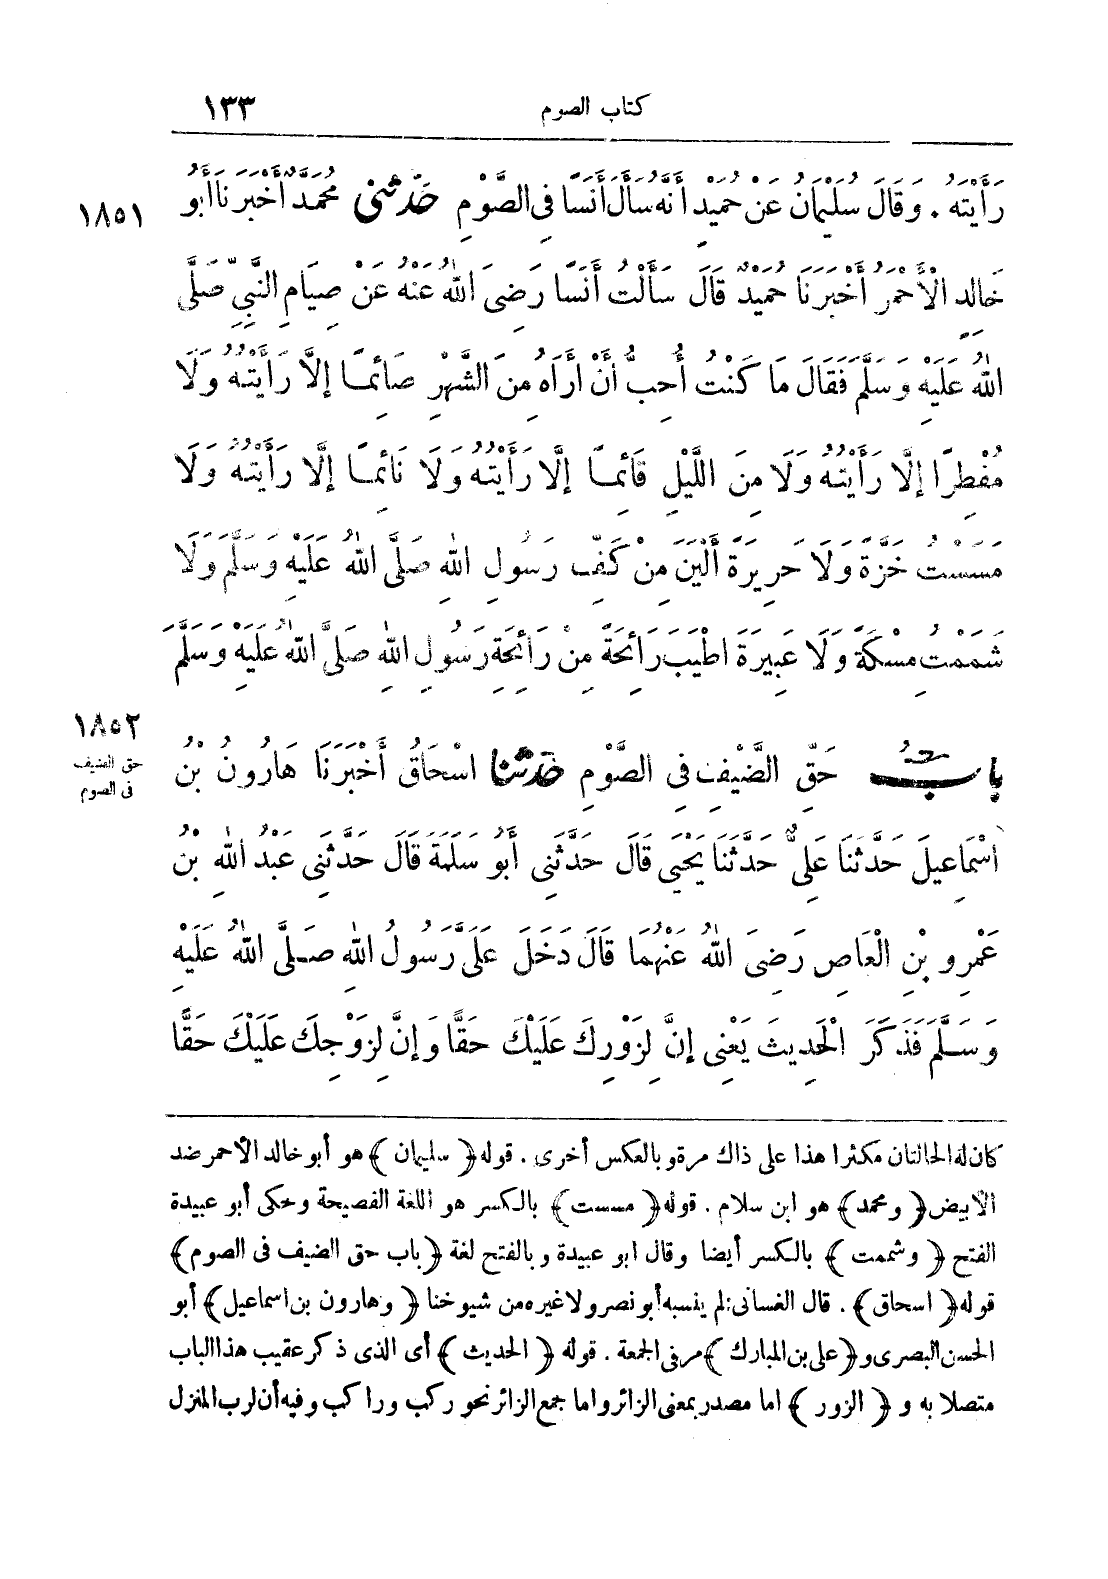 كتاب الصوم ١٣٣
رَأَيْتَهُ . وَقَالَ سُلَيْمَانُ عَنْ حُمَيْدٍ أَنَّهُ سَأَلَ أَنَسًا فِى الصَّوْمِ حَدَّثَنِى مُحَمَّدٌ أَخْبَرَنَا أَبُو
١٨٥١
خَالِدٍ الْأَحْمَرُ أَخْبَرَنَا حُمَيْدٌ قَالَ سَأَلْتُ أَنَسًا رَضِىَ اللهُ عَنْهُ عَنْ صِيَامِ النَّبِىِّ صَلَّى
اللهُ عَلَيْهِ وَسَلَّمَ فَقَالَ مَا كُنْتُ أُحِبُّ أَنْ أَرَاهُ مِنَ الشَّهْرِ صَائِمًا إِلَّا رَأَيْتُهُ وَلَا
مُفْطِرًا إِلَّا رَأَيْتُهُ وَلَا مِنَ اللَّيْلِ قَائِمًا إِلَّا رَأَيْتُهُ وَلَا نَائِمًا إِلَّا رَأَيْتُهُ وَلَا
مَسِسْتُ خَزَّةً وَلَا حَرِيرَةً أَلْيَنَ مِنْ كَفِّ رَسُولِ اللهِ صَلَّى اللهُ عَلَيْهِ وَسَلَّمَ وَلَا
شَمِمْتُ مِسْكَةً وَلَا عَبِيرَةً أَطْيَبَ رَائِحَةً مِنْ رَائِحَةِ رَسُولِ اللهِ صَلَّى اللهُ عَلَيْهِ وَسَلَّمَ
بابُ حَقِّ الضَّيْفِ فِى الصَّوْمِ حَدَّثَنَا اسْحَاقُ أَخْبَرَنَا هَارُونُ بْنُ
١٨٥٢
حق الضيف
فى الصوم
اسْمَاعِيلَ حَدَّثَنَا عَلِىٌّ حَدَّثَنَا يَحْيَى قَالَ حَدَّثَنِى أَبُو سَلَمَةَ قَالَ حَدَّثَنِى عَبْدُ اللهِ بْنُ
عَمْرِو بْنِ الْعَاصِ رَضِىَ اللهُ عَنْهُمَا قَالَ دَخَلَ عَلَىَّ رَسُولُ اللهِ صَلَّى اللهُ عَلَيْهِ
وَسَلَّمَ فَذَكَرَ الْحَدِيثَ يَعْنِى إِنَّ لِزَوْرِكَ عَلَيْكَ حَقًّا وَإِنَّ لِزَوْجِكَ عَلَيْكَ حَقًّا
كان له الحالتان مكثرا هذا على ذاك مرة وبالعكس أخرى . قوله ﴿ سليمان ﴾ هو أبو خالد الأحمر ضد
الأبيض ﴿ ومحمد ﴾ هو ابن سلام . قوله ﴿ مسست ﴾ بالكسر هو اللغة الفصيحة وحكى أبو عبيدة
الفتح ﴿ وشممت ﴾ بالكسر أيضا وقال ابو عبيدة وبالفتح لغة ﴿ باب حق الضيف فى الصوم ﴾
قوله ﴿ اسحاق ﴾ . قال الغسانى: لم ينسبه أبو نصر ولا غيره من شيوخنا ﴿ وهارون بن اسماعيل ﴾ أبو
الحسن البصرى و ﴿ على بن المبارك ﴾ مر فى الجمعة . قوله ﴿ الحديث ﴾ أى الذى ذكر عقيب هذا الباب
متصلا به و ﴿ الزور ﴾ اما مصدر بمعنى الزائر واما جمع الزائر نحو ركب وراكب وفيه أن لرب المنزل